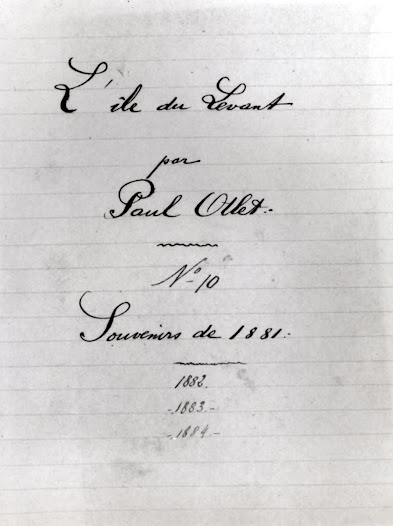 L'île du Levant
par
Paul Otlet.
Nº 10
Souvenirs de 1881.
1882.
-1883.-
-1884.-